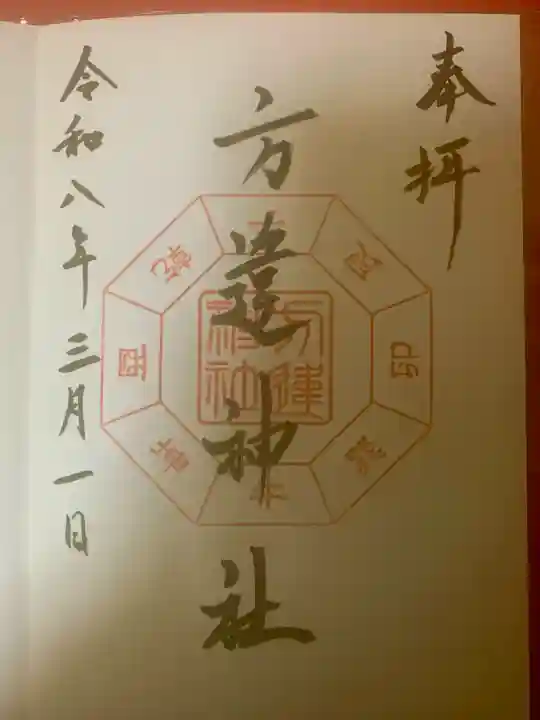 奉拝
方違神社
令和八年三月一日
方違
神社
卯
酉